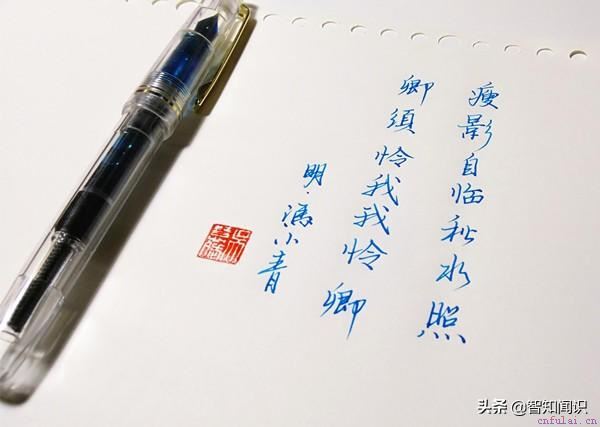 瘦影自临秋水照
卿须怜我我怜卿
明·馮小青
头条@智知闻识
cnfulai.cn